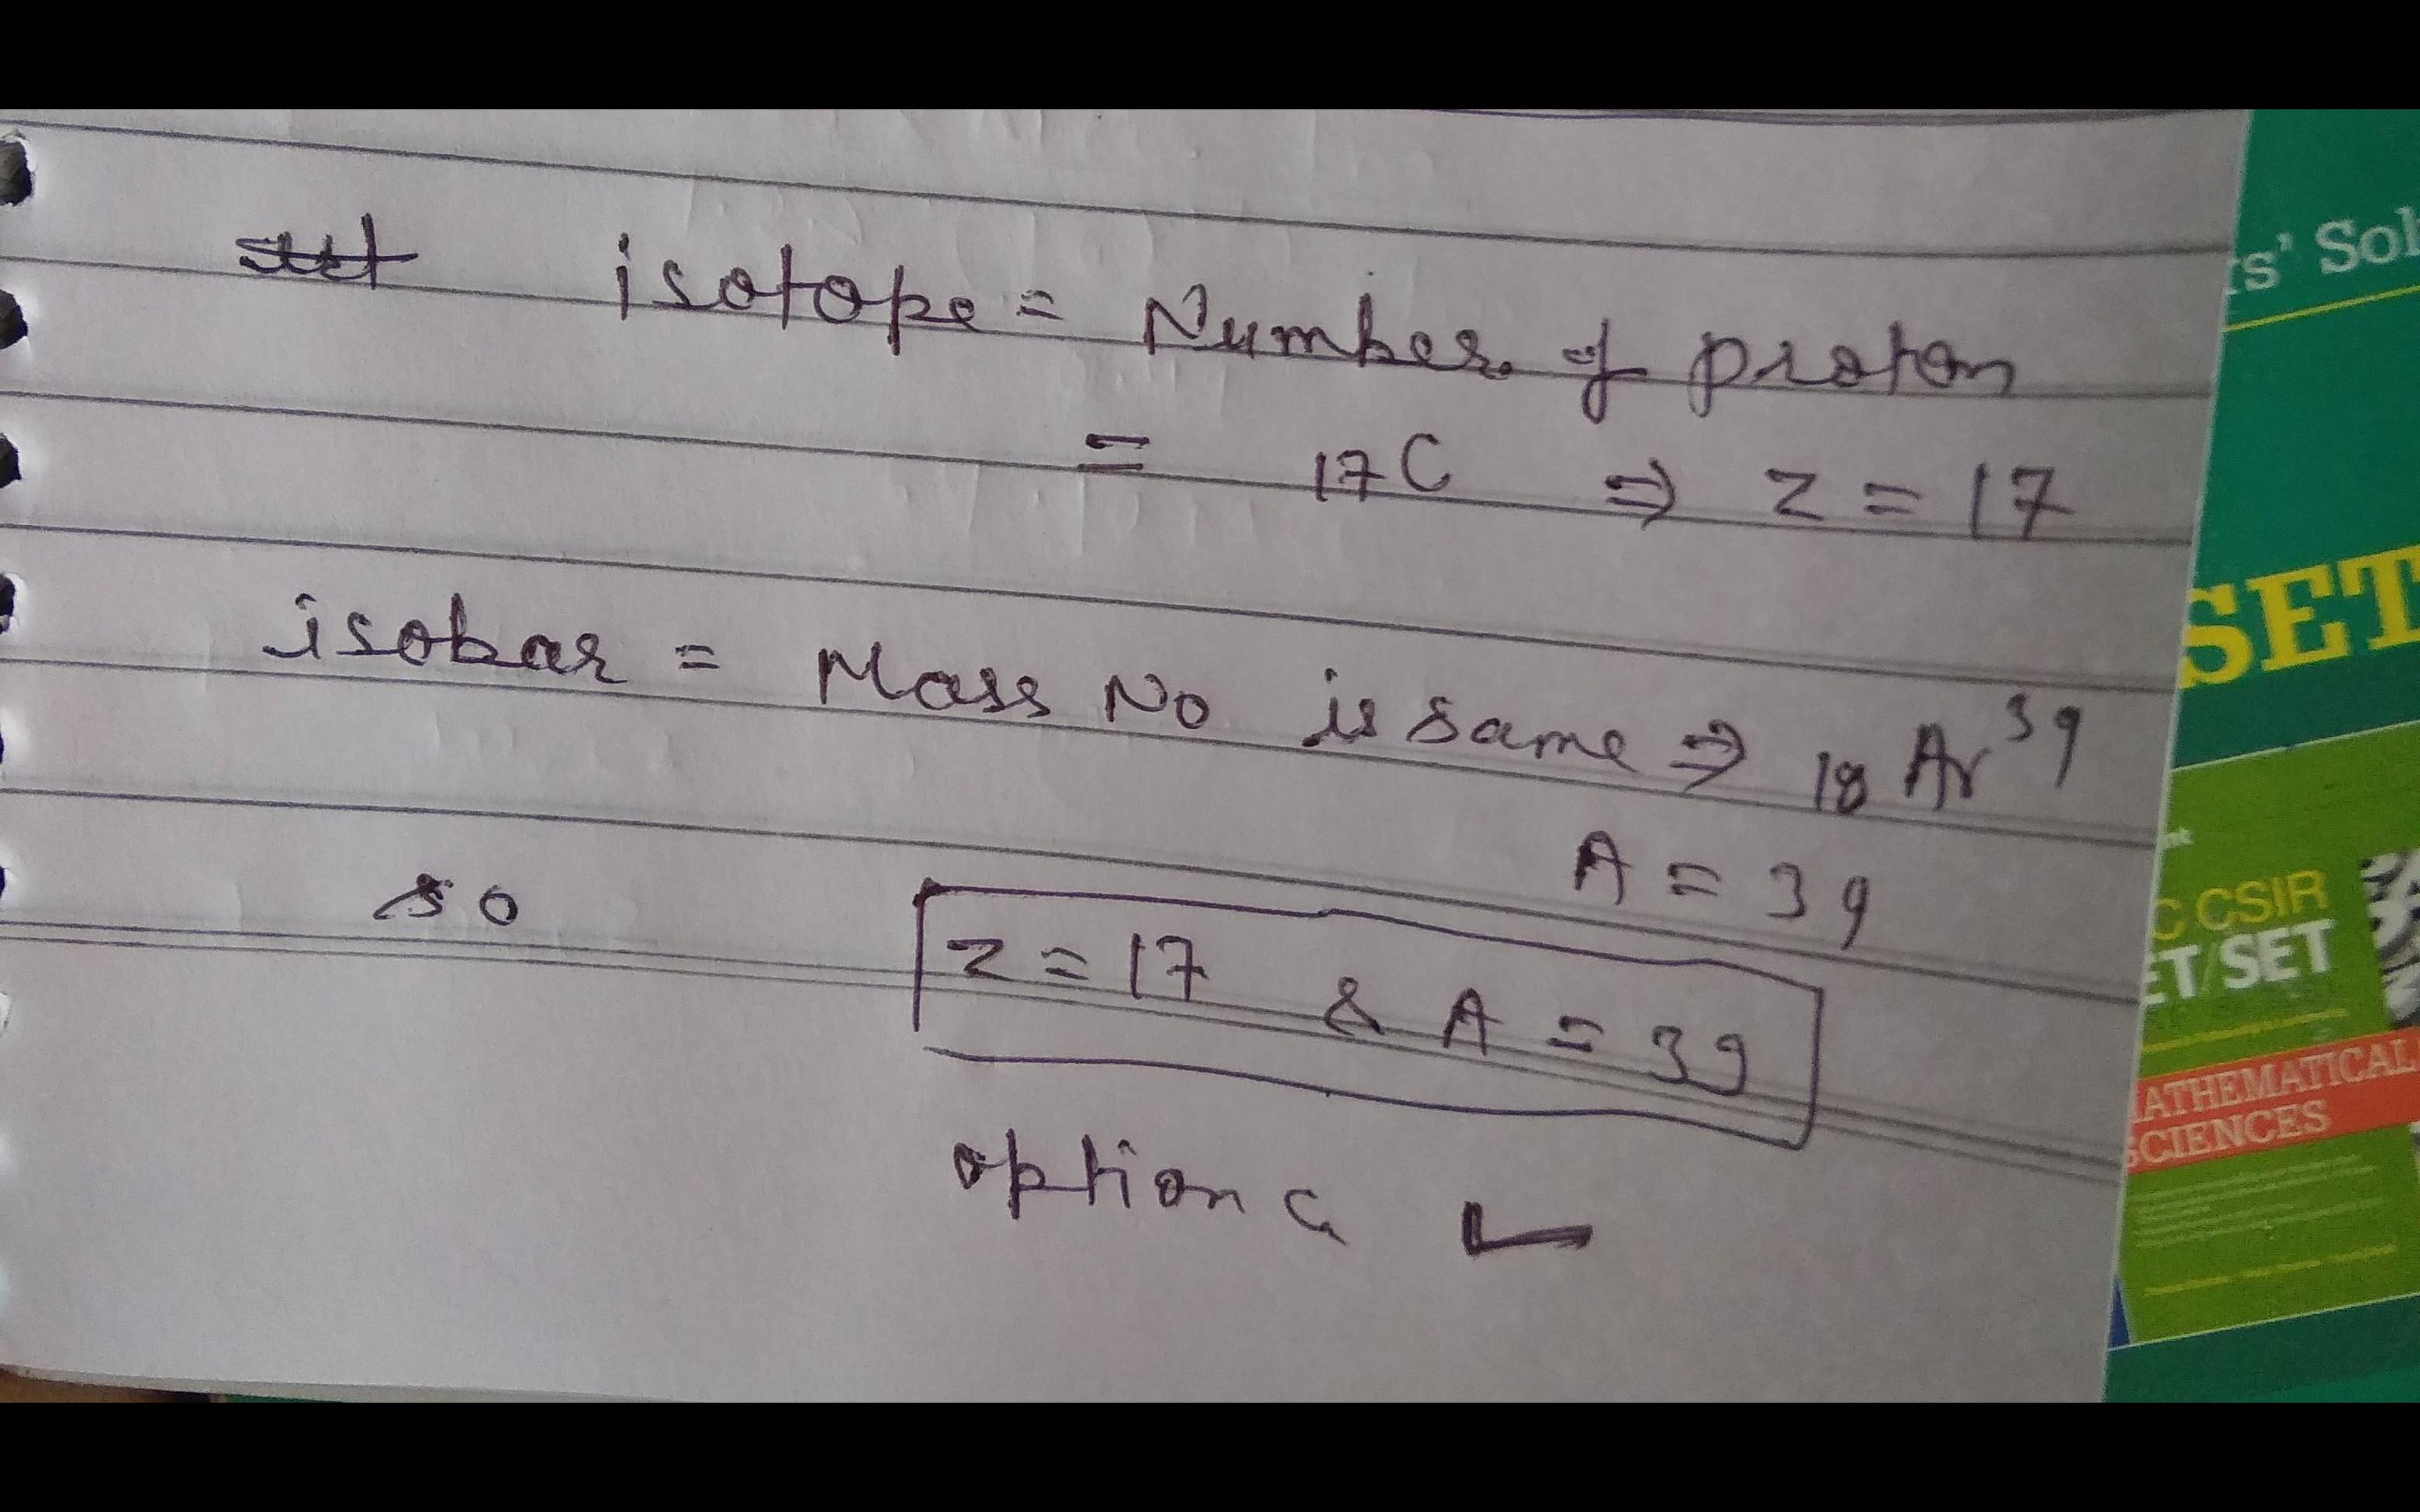 isotope = Number of proton
= 17C ⇒ z = 17
isobar = Mass No is same ⇒ 18 Ar 39
A = 39
so
z = 17 & A = 39
option C
s' Sol
SET
C CSIR
ET/SET
ATHEMATICAL
SCIENCES